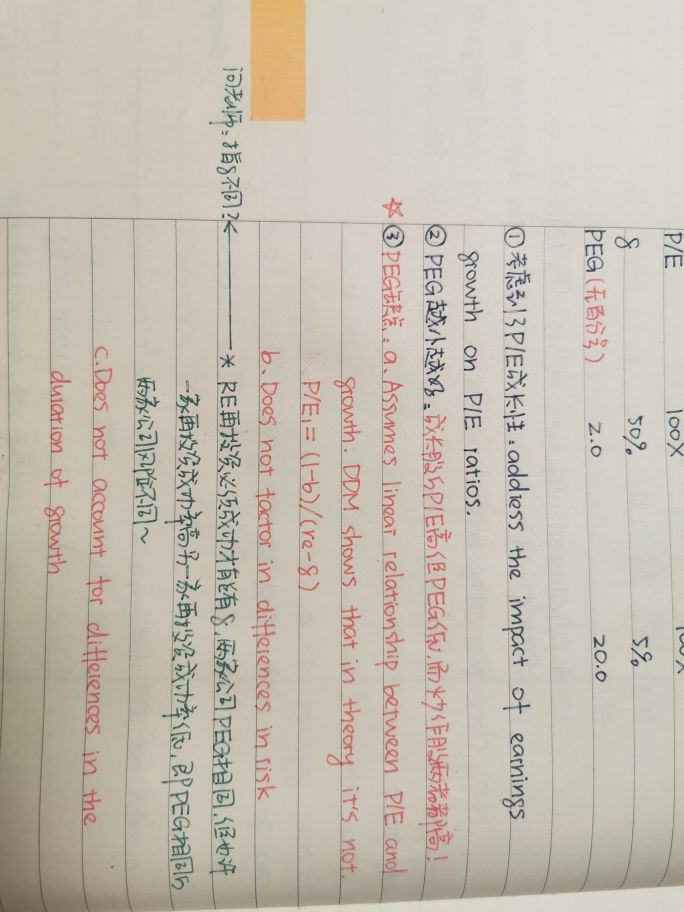 P/E 100X 100X
g 50% 5%
PEG (无百分号) 2.0 20.0
① 考虑到了P/E成长性：address the impact of earnings
growth on P/E ratios.
② PEG越小越好：成长股的P/E高但PEG低，而火力任股两者都高！
☆ ③ PEG缺点：a. Assumes linear relationship between P/E and
growth. DDM shows that in theory it's not.
P/E₁ = (1-b)/(re-g)
b. Does not factor in differences in risk
问老师：指g不同？← * RE再投资必须成功才能有g，两家公司PEG相同，但也许
一家再投资成功率高另一家再投资成功率低，即PEG相同的
两家公司风险不同~
c. Does not account for differences in the
duration of growth